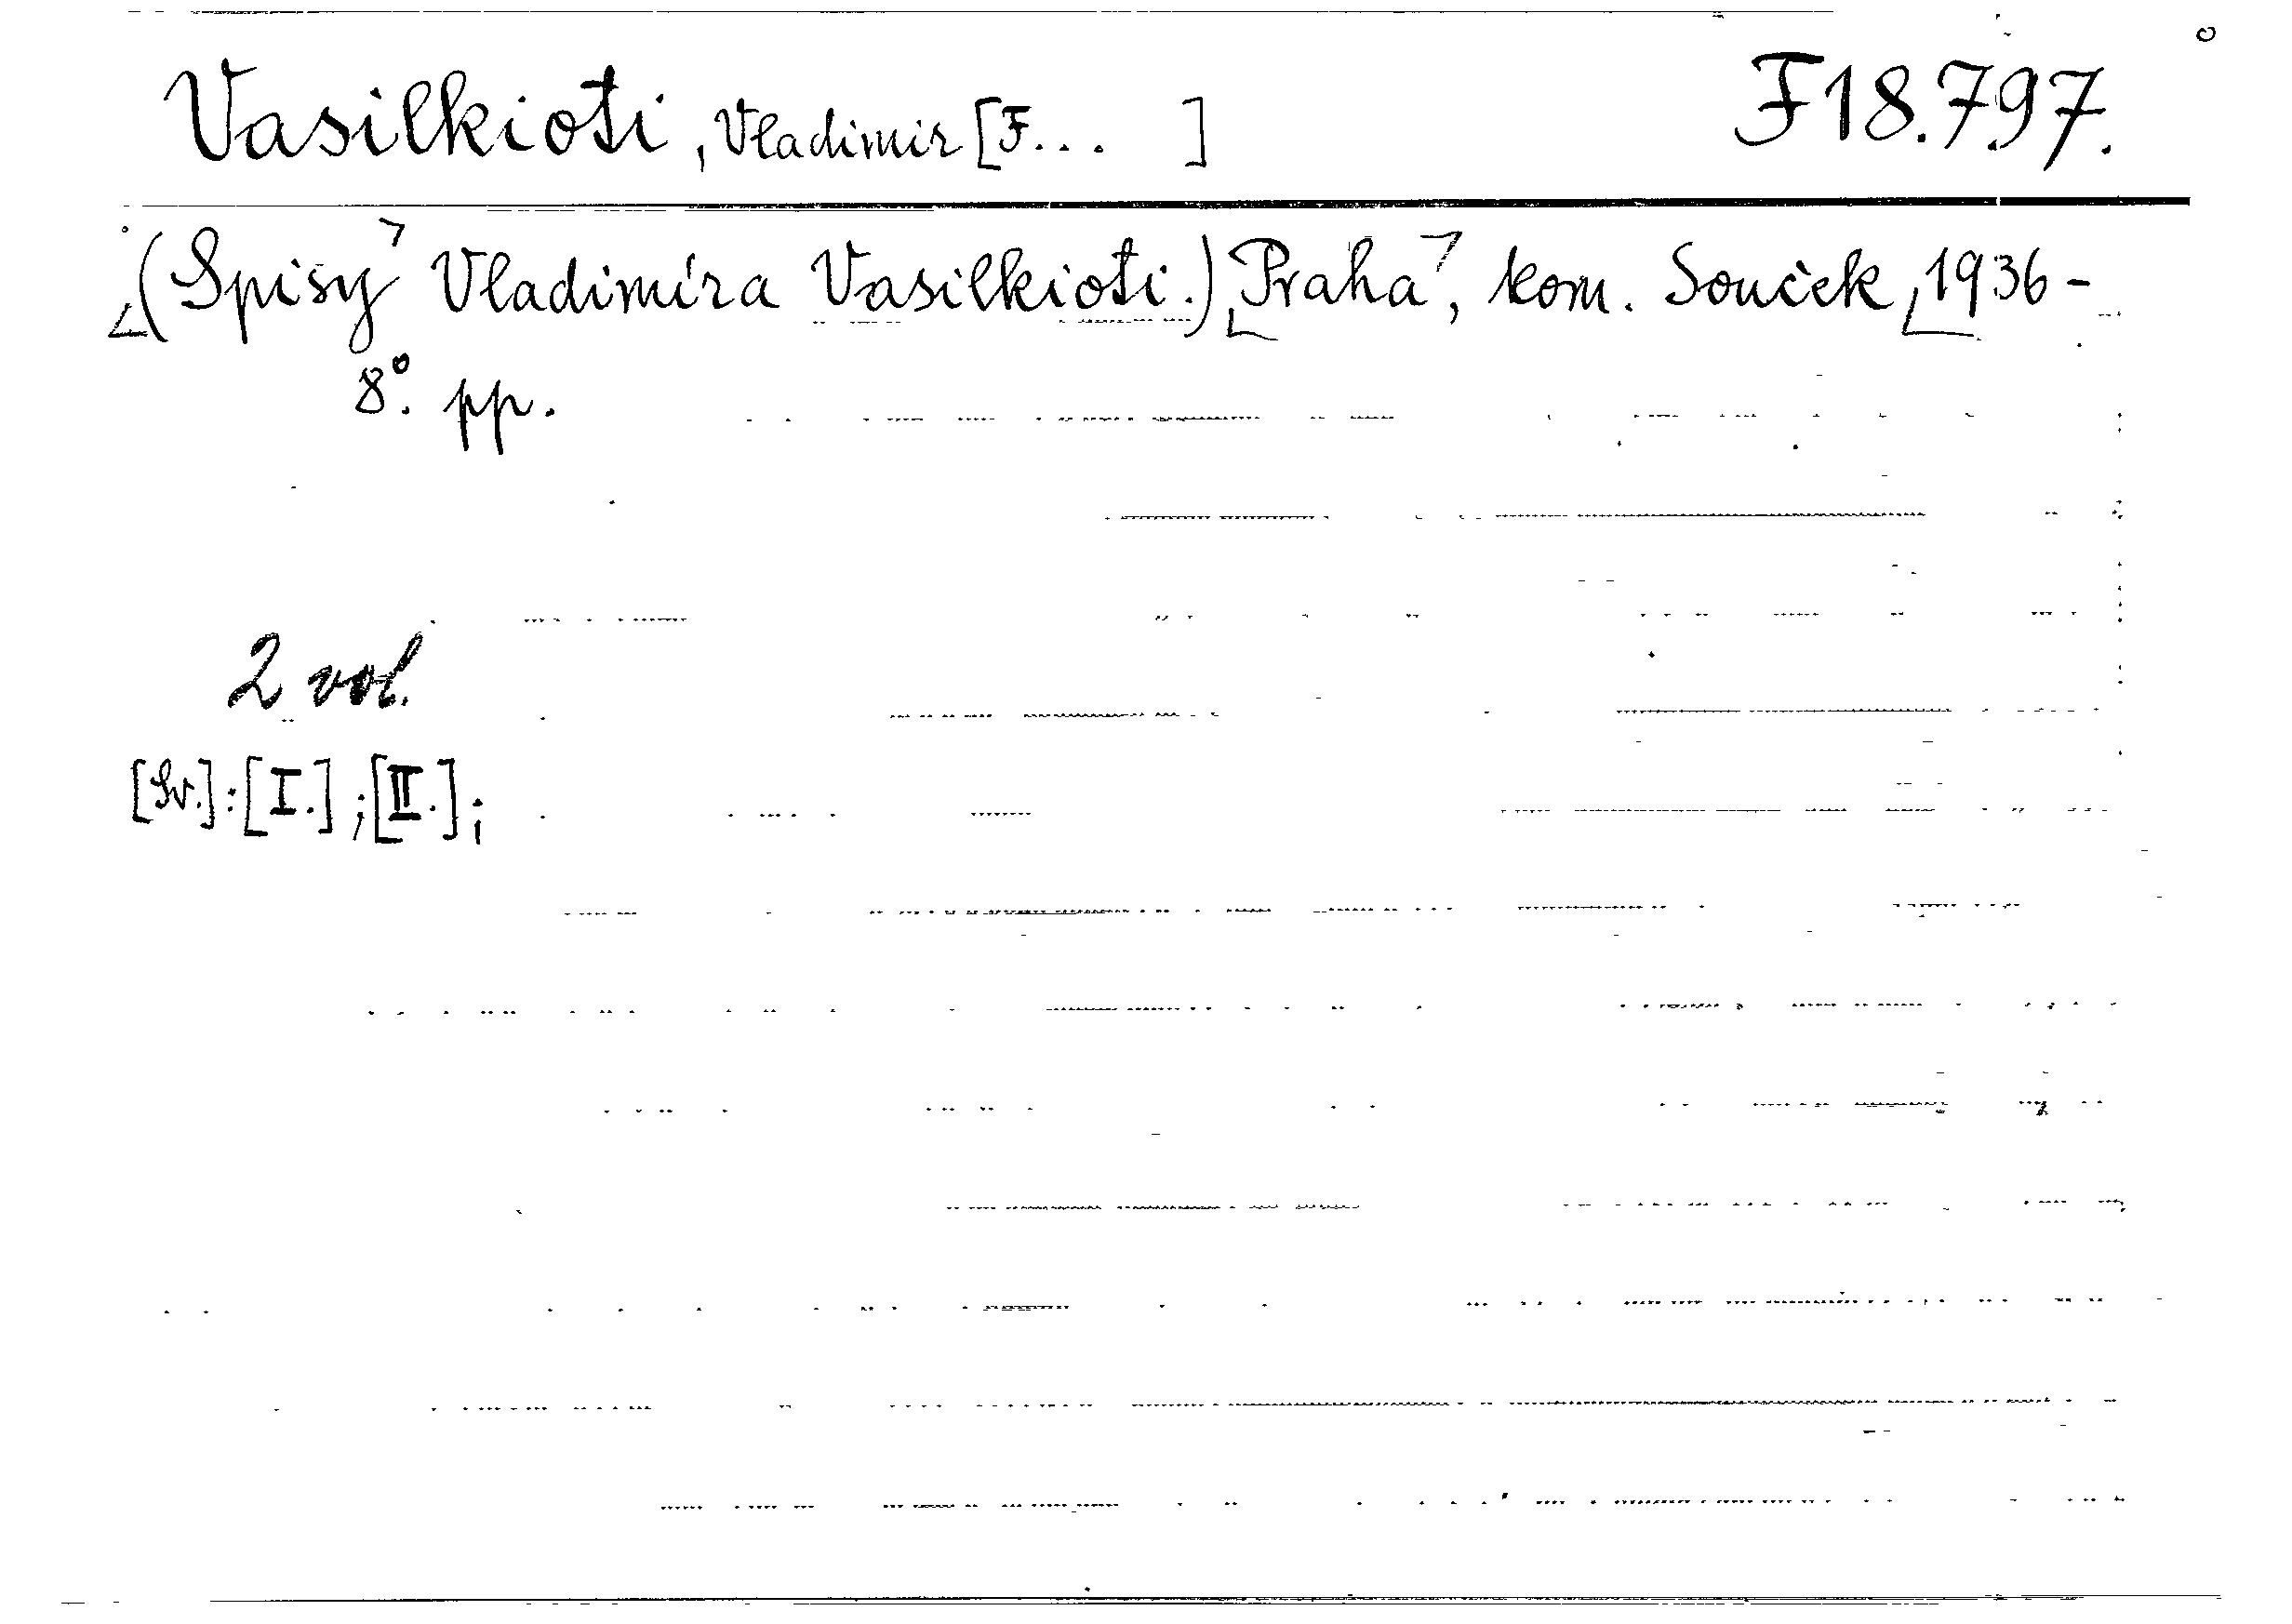 Vasilkioti, Vladimir [F... ] F18.797.
(Spisy Vladimíra Vasilkioti.) Praha, kom. Souček, 1936-
8°. pp.
2 vol.
[Sv.]: [I.]; [II.];